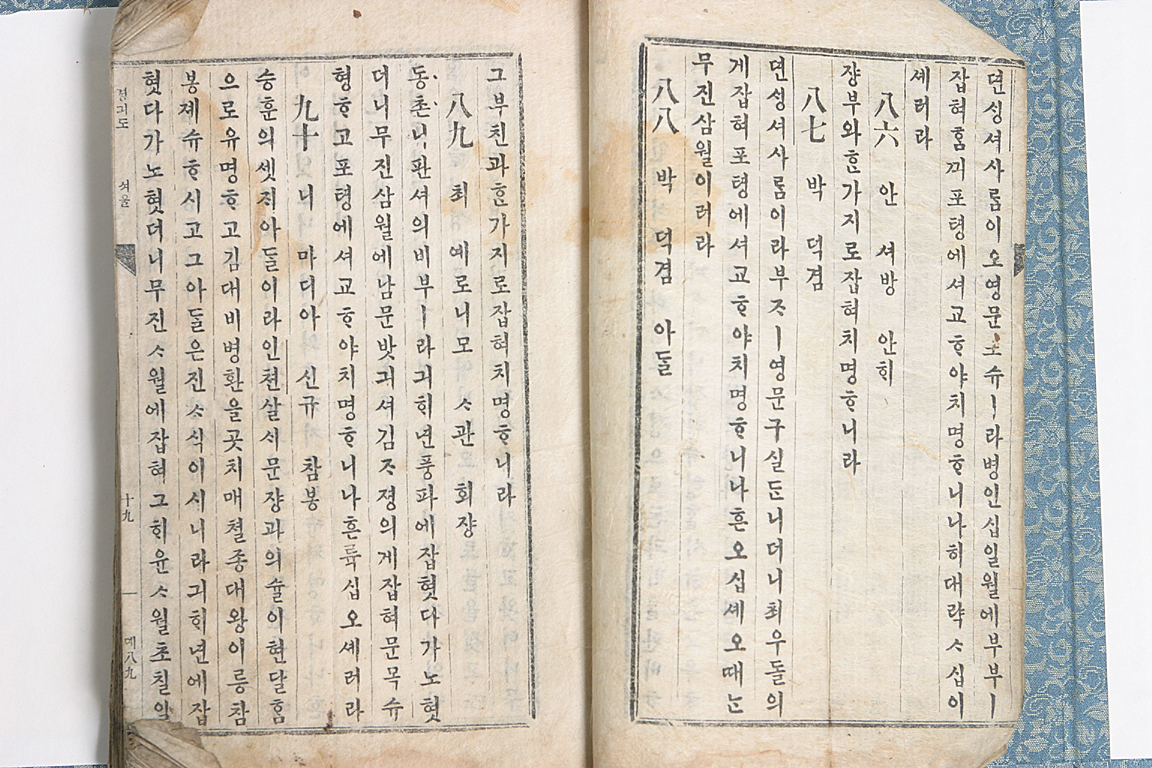 뎐셩셔사ᄅᆞᆷ이오영문쇼슈ㅣ라병인십일월에부부ㅣ
잡혀ᄒᆞᆷᄭᅴ포텽에셔교ᄒᆞ야치명ᄒᆞ니나히대략ᄉᆞ십이
셰러라
八六 안 셔방 안ᄒᆡ
쟝부와ᄒᆞᆫ가지로잡혀치명ᄒᆞ니라
八七 박 덕겸
뎐셩셔사ᄅᆞᆷ이라부ᄌᆞㅣ영문구실ᄃᆞᆫ니더니최우돌의
게잡혀포텽에셔교ᄒᆞ야치명ᄒᆞ니나흔오십셰오때ᄂᆞᆫ
무진삼월이러라
八八 박 덕겸 아ᄃᆞᆯ
그부친과ᄒᆞᆫ가지로잡혀치명ᄒᆞ니라
八九 최 예로니모 ᄉᆞ관 회쟝
동촌니판셔의비부ㅣ라긔ᄒᆡ년풍파에잡혓다가노혓
더니무진삼월에남문밧긔셔김ᄌᆞ졍의게잡혀문목슈
형ᄒᆞ고포텽에셔교ᄒᆞ야치명ᄒᆞ니나흔륙십오셰러라
九十 니 마디아 신규 참봉
승훈의셋ᄌᆡ아ᄃᆞᆯ이라인쳔살시문쟝과의슐이현달ᄒᆞᆷ
으로유명ᄒᆞ고김대비병환을곳치매쳘종대왕이릉참
봉졔슈ᄒᆞ시고그아ᄃᆞᆯ은진ᄉᆞ식이시니라긔ᄒᆡ년에잡
혓다가노혓더니무진ᄉᆞ월에잡혀그ᄒᆡ윤ᄉᆞ월초칠일
경긔도 셔울 十九 예八九